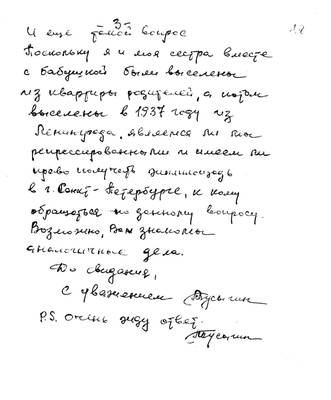 3-
12
И еще такой вопрос
Поскольку я и моя сестра вместе
с бабушкой были выселены
из квартиры родителей, а потом
выселены в 1937 году из
Ленинграда, являемся ли мы
репрессированными и имеем ли
право получить жилплощадь
в г. Санкт-Петербурге, к кому
обращаться по данному вопросу.
Возможно, Вам знакомы
аналогичные дела.
До свидания,
с уважением
P.S. очень жду ответ.